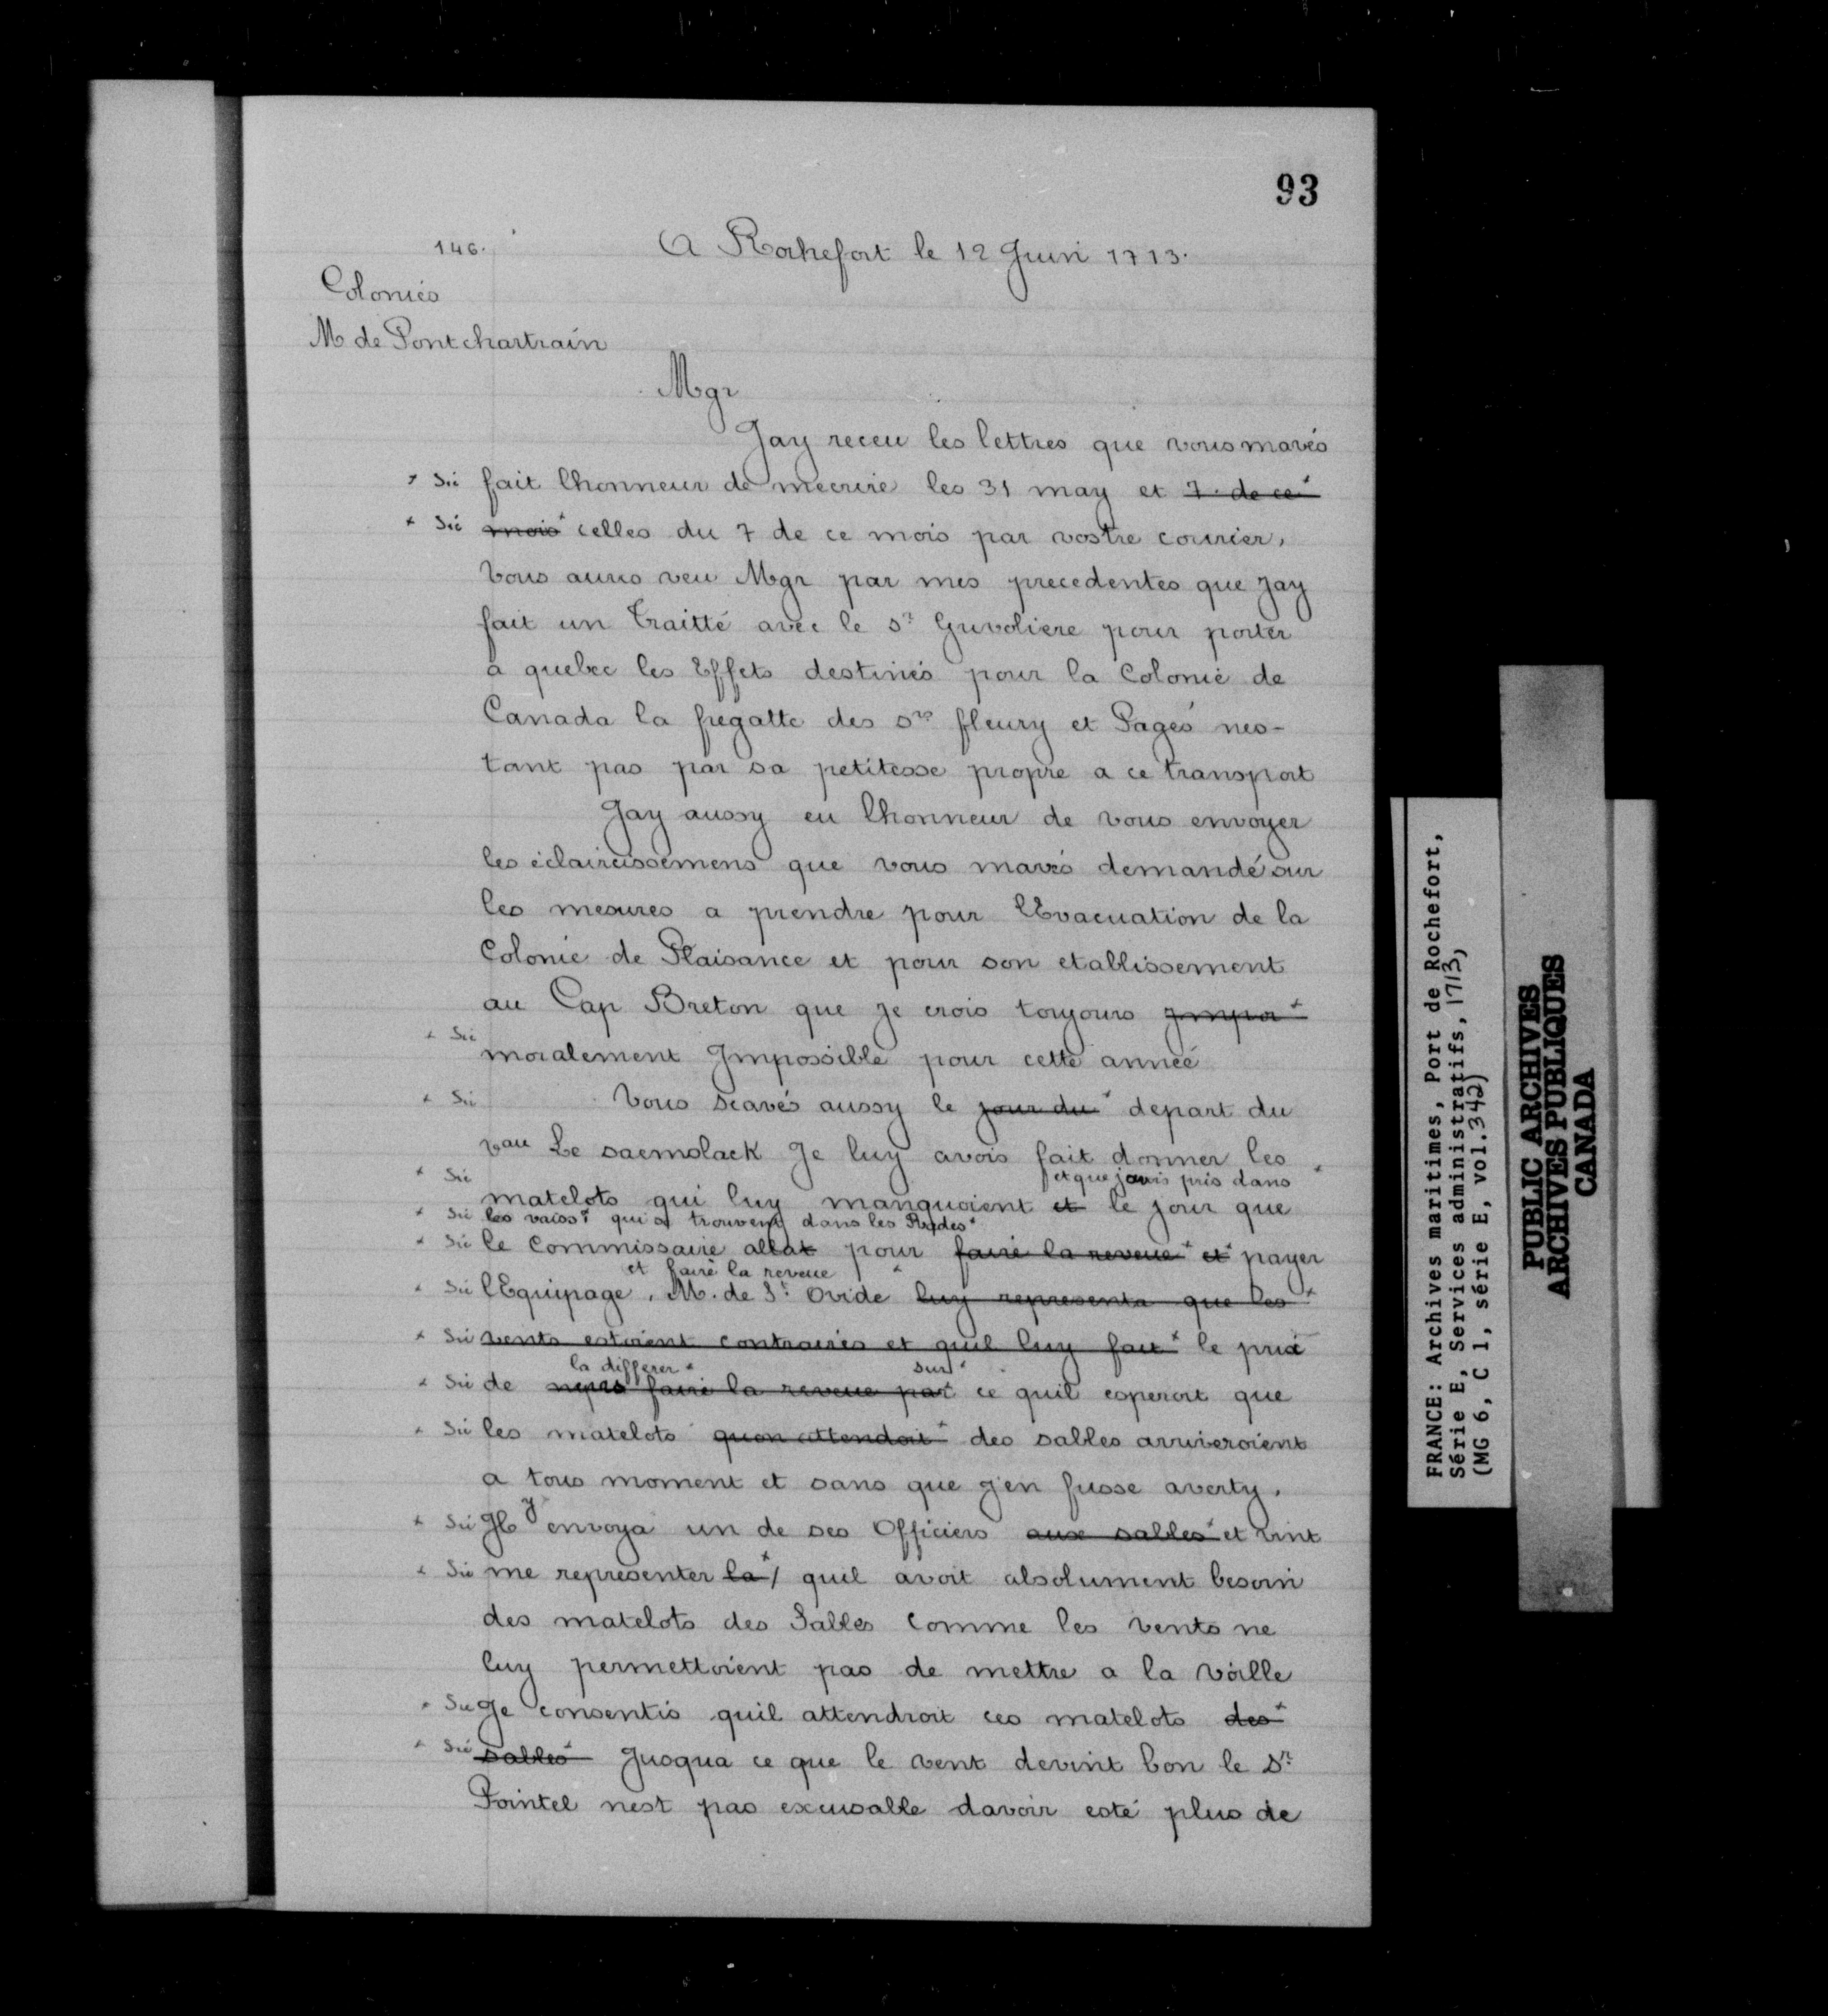 93
146.
A Rochefort le 12 Juin 1713.
Colonies
M de Pontchartrain
Mgr
Jay receu les lettres que vous mavés
* Sic fait lhonneur de mecrire les 31 may et 7. de ce*
* Sic mois* celles du 7 de ce mois par vostre courier,
Vous aures veu Mgr par mes precedentes que Jay
fait un Traitté avec le Sr. Guvoliere pour porter
a quebec les Effets destinés pour la Colonie de
Canada la fregatte des Srs fleury et Pagés nes-
tant pas par sa petitesse propre a ce transport
Jay aussy eu lhonneur de vous envoyer
les éclaircissemens que vous mavés demandé sur
les mesures a prendre pour lEvacuation de la
Colonie de Plaisance et pour son etablissement
au Cap Breton que je crois toujours Jmpor*
* Sic moralement Jmpossible pour cette année
* Sic Vous scavés aussy le jour du* depart du
vau Le saemslack Je luy avois fait donner les
* Sic et que javois pris dans *
matelots qui luy manquoient et le jour que
* Sic les vaisst qui se trouvent dans les Rades*
* Sic le Commissaire allat pour faire la reveue* et* payer
et faire la reveue *
* Sic lEquipage, M. de St. Ovide luy representa que les*
* Sic vents estoient contraires et quil luy fait* le priá
la differer* sur*
* Sic de faire la reveue par* ce quil esperoit que
* Sic les matelots quon attendoit* des sables arriveroient
a tous moment et sans que j'en fusse averty,
y
* Sic Jl envoya un de ses Officiers aux sables* et vint
* Sic me representer la*/ quil avoit absolument besoin
des matelots des Sables Comme les vents ne
luy permettoient pas de mettre a la voille
* Sic Je consentis quil attendroit ces matelots des*
* Sic sables* Jusqua ce que le vent devint bon le Sr.
Pointel nest pas excusable davoir esté plus de
FRANCE: Archives maritimes, Port de Rochefort,
Série E, Services administratifs, 1713,
(MG 6, C 1, série E, vol.342)
PUBLIC ARCHIVES
ARCHIVES PUBLIQUES
CANADA